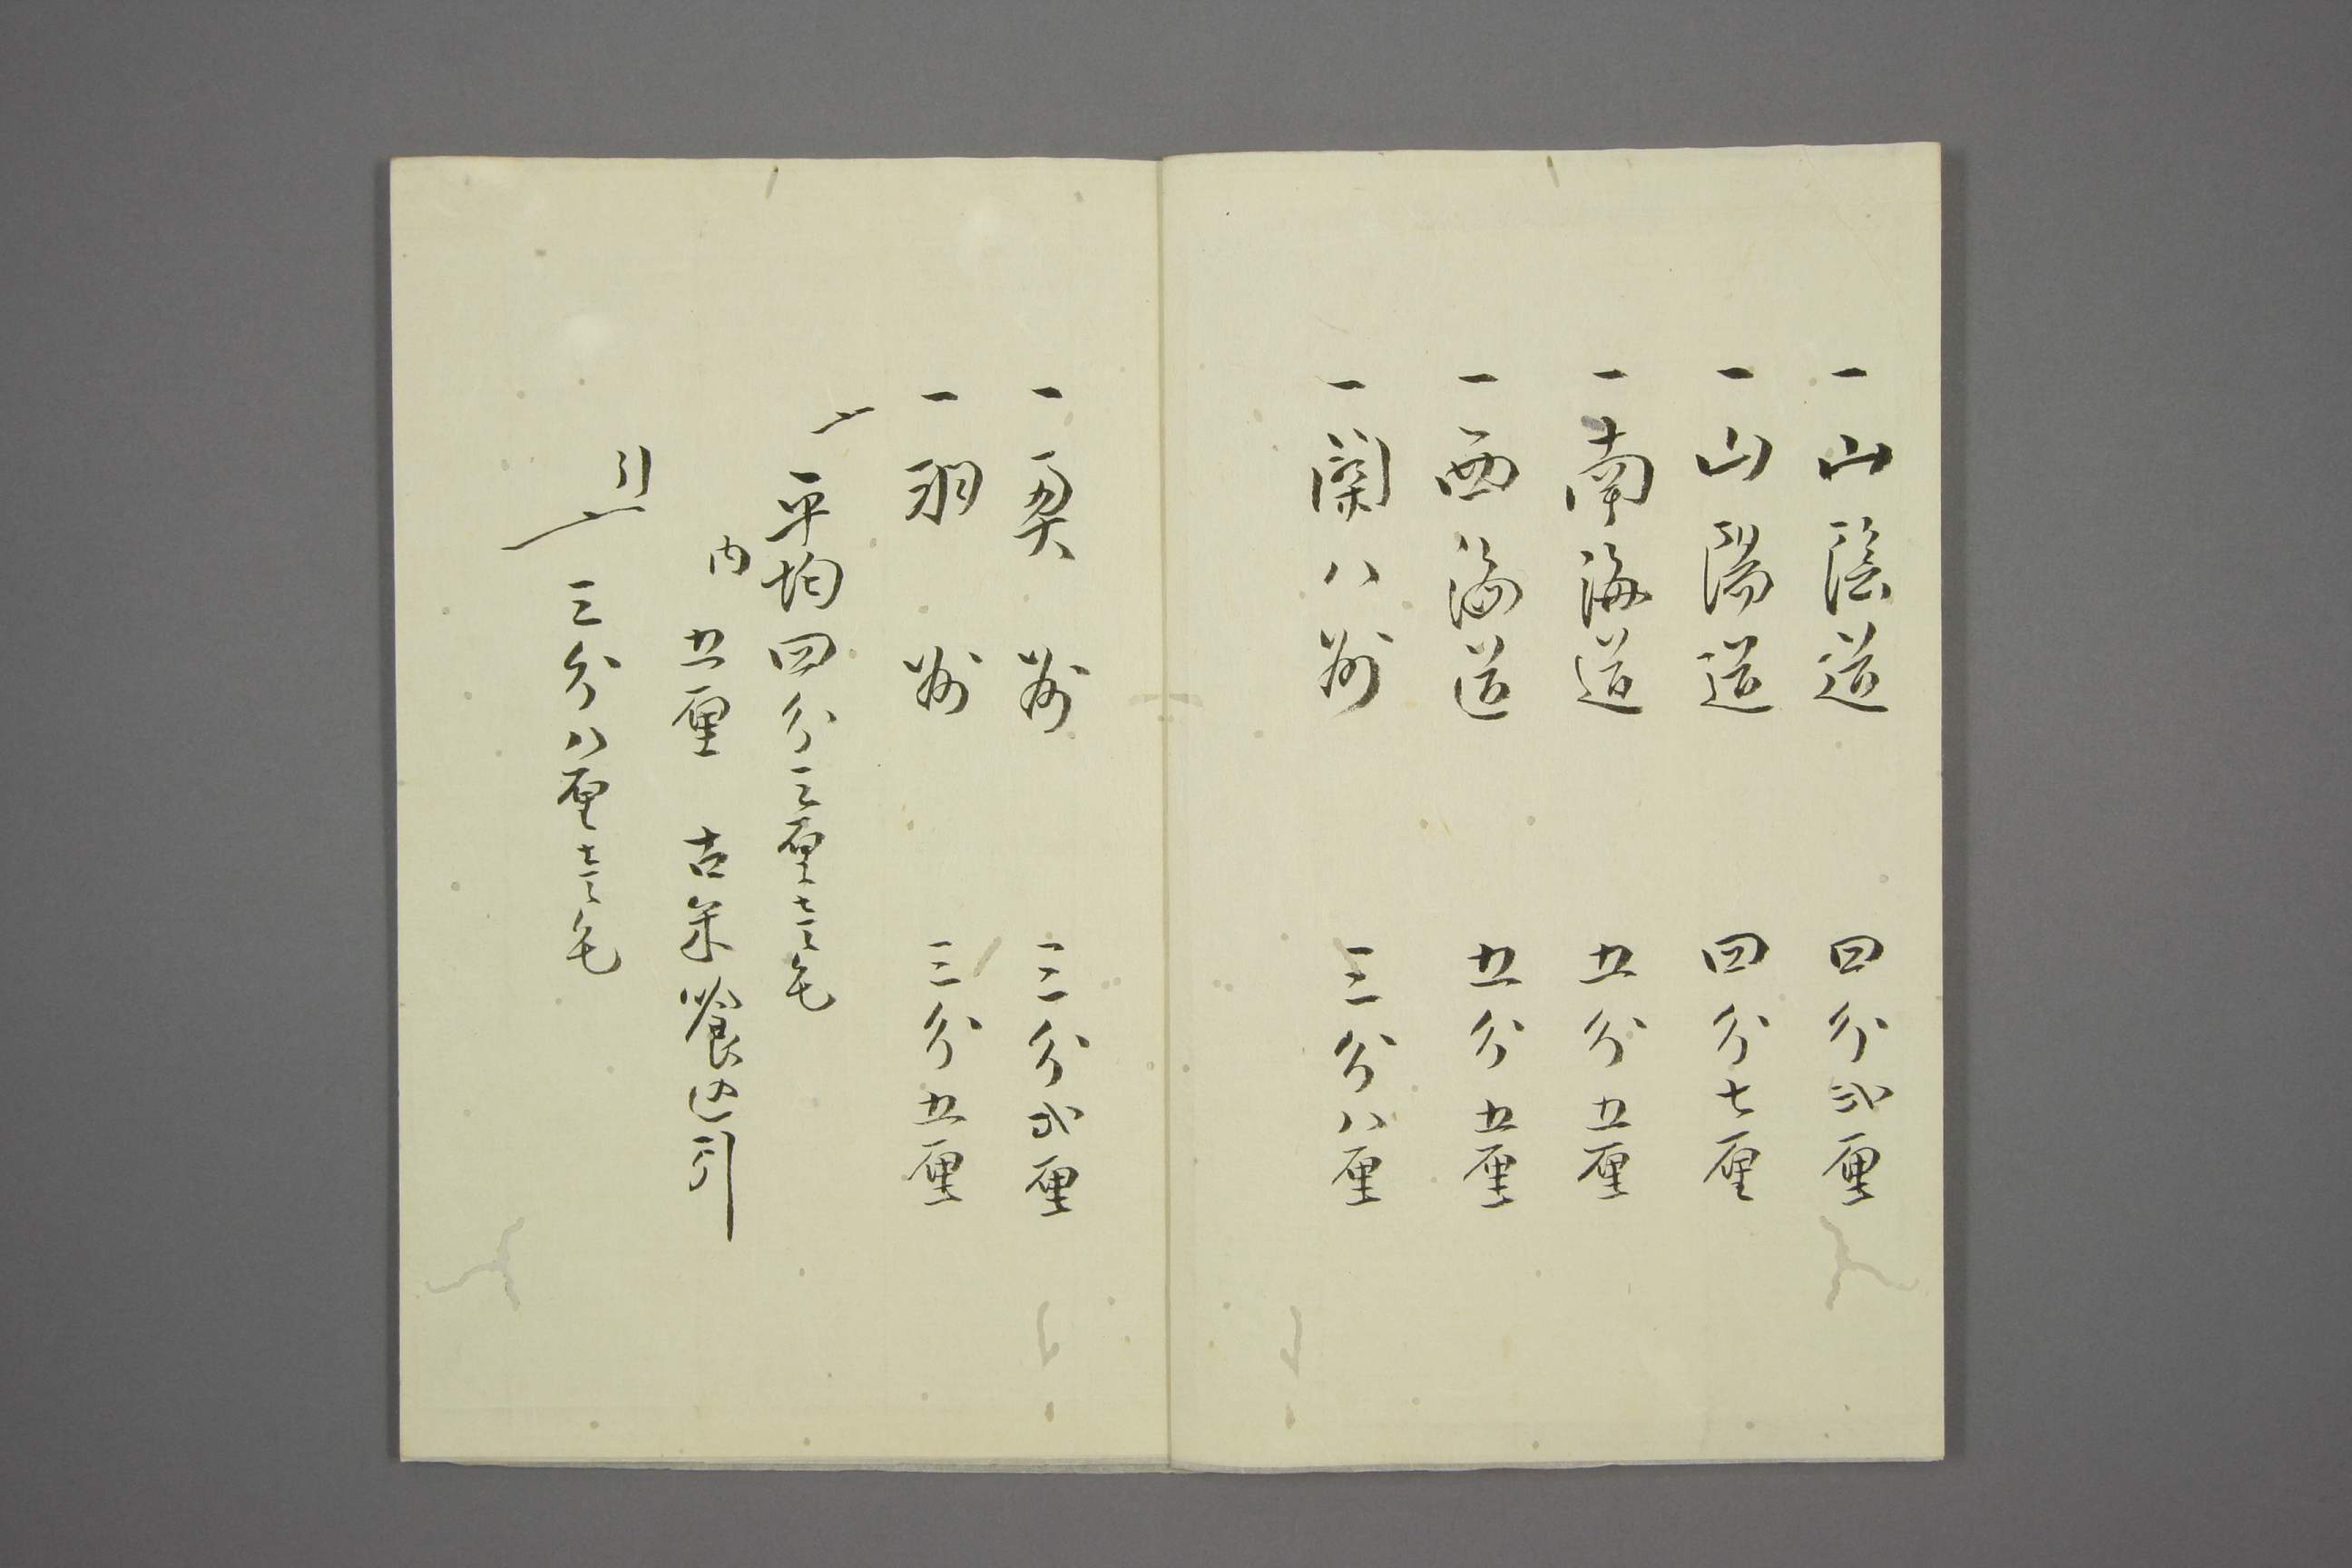 一山陰道 四分弐厘
一山陽道 四分七厘
一南海道 五分五厘
一西海道 五分五厘
一関八州 三分八厘
一奥州 三分弐厘
一羽州 三分五厘
〆平均四分三厘壱毛
内 五厘 古米喰込引
引〆三分八厘壱毛